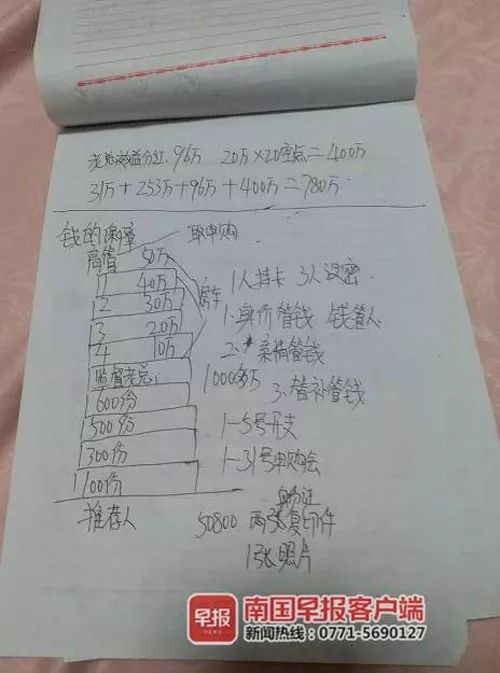 老总效益分红 96万 20万×20空点=400万
31万+253万+96万+400万=780万
钱的保障 取申购
高管 50万
1 40万 1人持卡 3人设密
2 30万 轿车
3 20万 1.身价管钱 钱管人
4 10万 2.亲情管钱
监督老总 1000多万
600份 3.替补管钱
500份 1-5号开支
300份 1-31号申购会
100份
推荐人 身份证
50800 两张复印件
1张照片
早报 南国早报客户端
新闻热线:0771-5690127